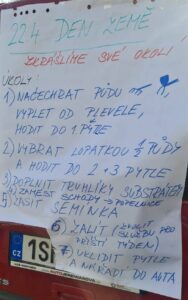 22.4 DEN ZEMĚ
ZKRÁŠLÍME SVÉ OKOLÍ
ÚKOLY:
1) NAČECHRAT PŮDU
VYPLET OD PLEVELE,
HODIT DO 1 PYTLE
2) VYBRAT LOPATKOU 1/2 PŮDY
A HODIT DO 2+3 PYTLE
3) DOPLNIT TRUHLÍKY SUBSTRÁTEM
4) ZAMÉST SCHODY → POPELNICE
5) ZASÍT SEMÍNKA
6) ZALÍT (ZVOLIT SLUŽBU PRO PŘÍŠTÍ TÝDEN)
7) UKLIDIT PYTLE
A NÁŘADÍ DO AUTA
CZ
1S